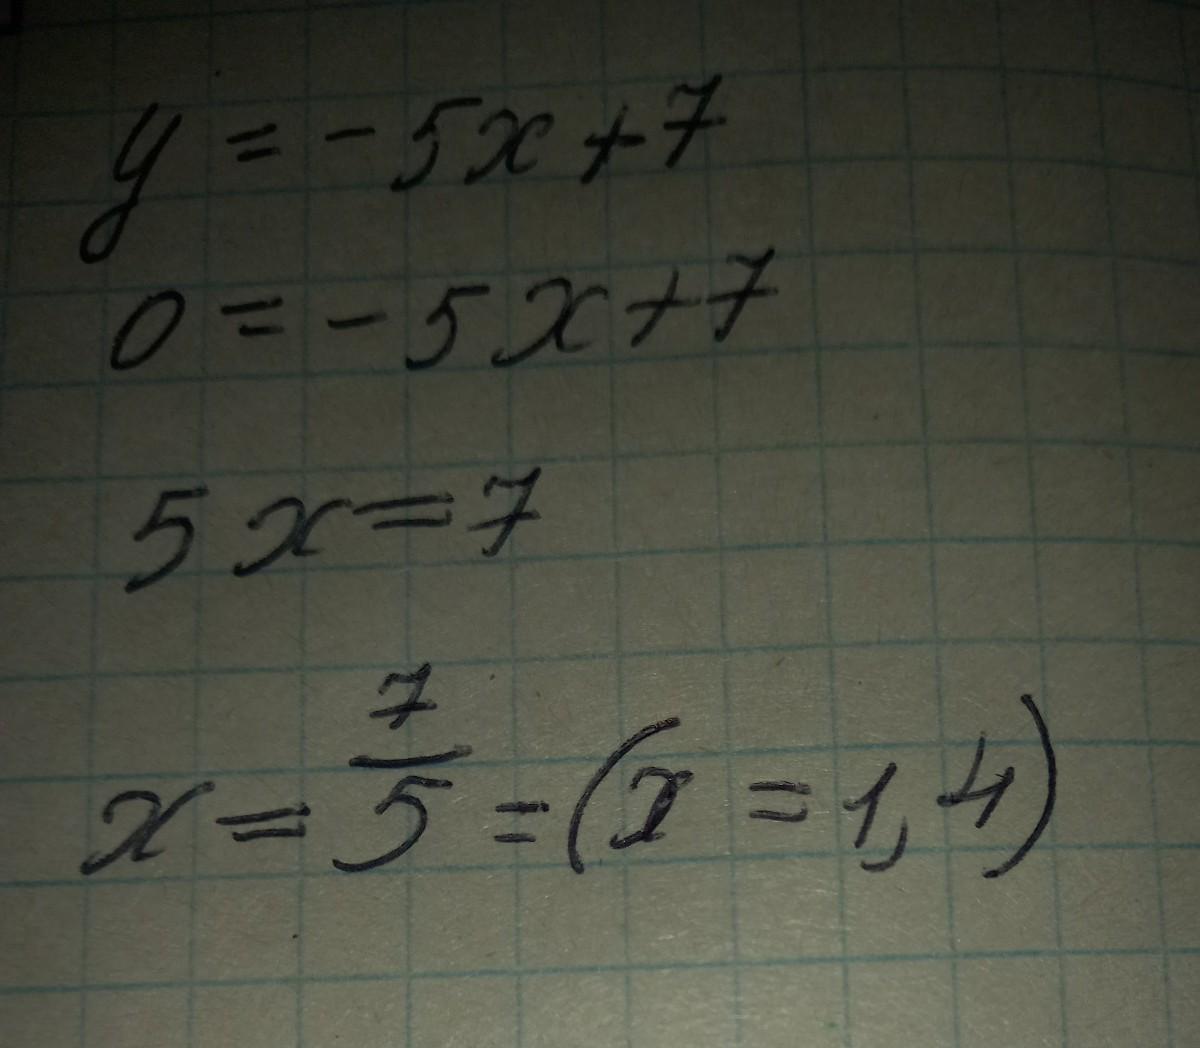 y = -5x+7
0 = -5x+7
5x=7
x = 7/5 = (x = 1,4)